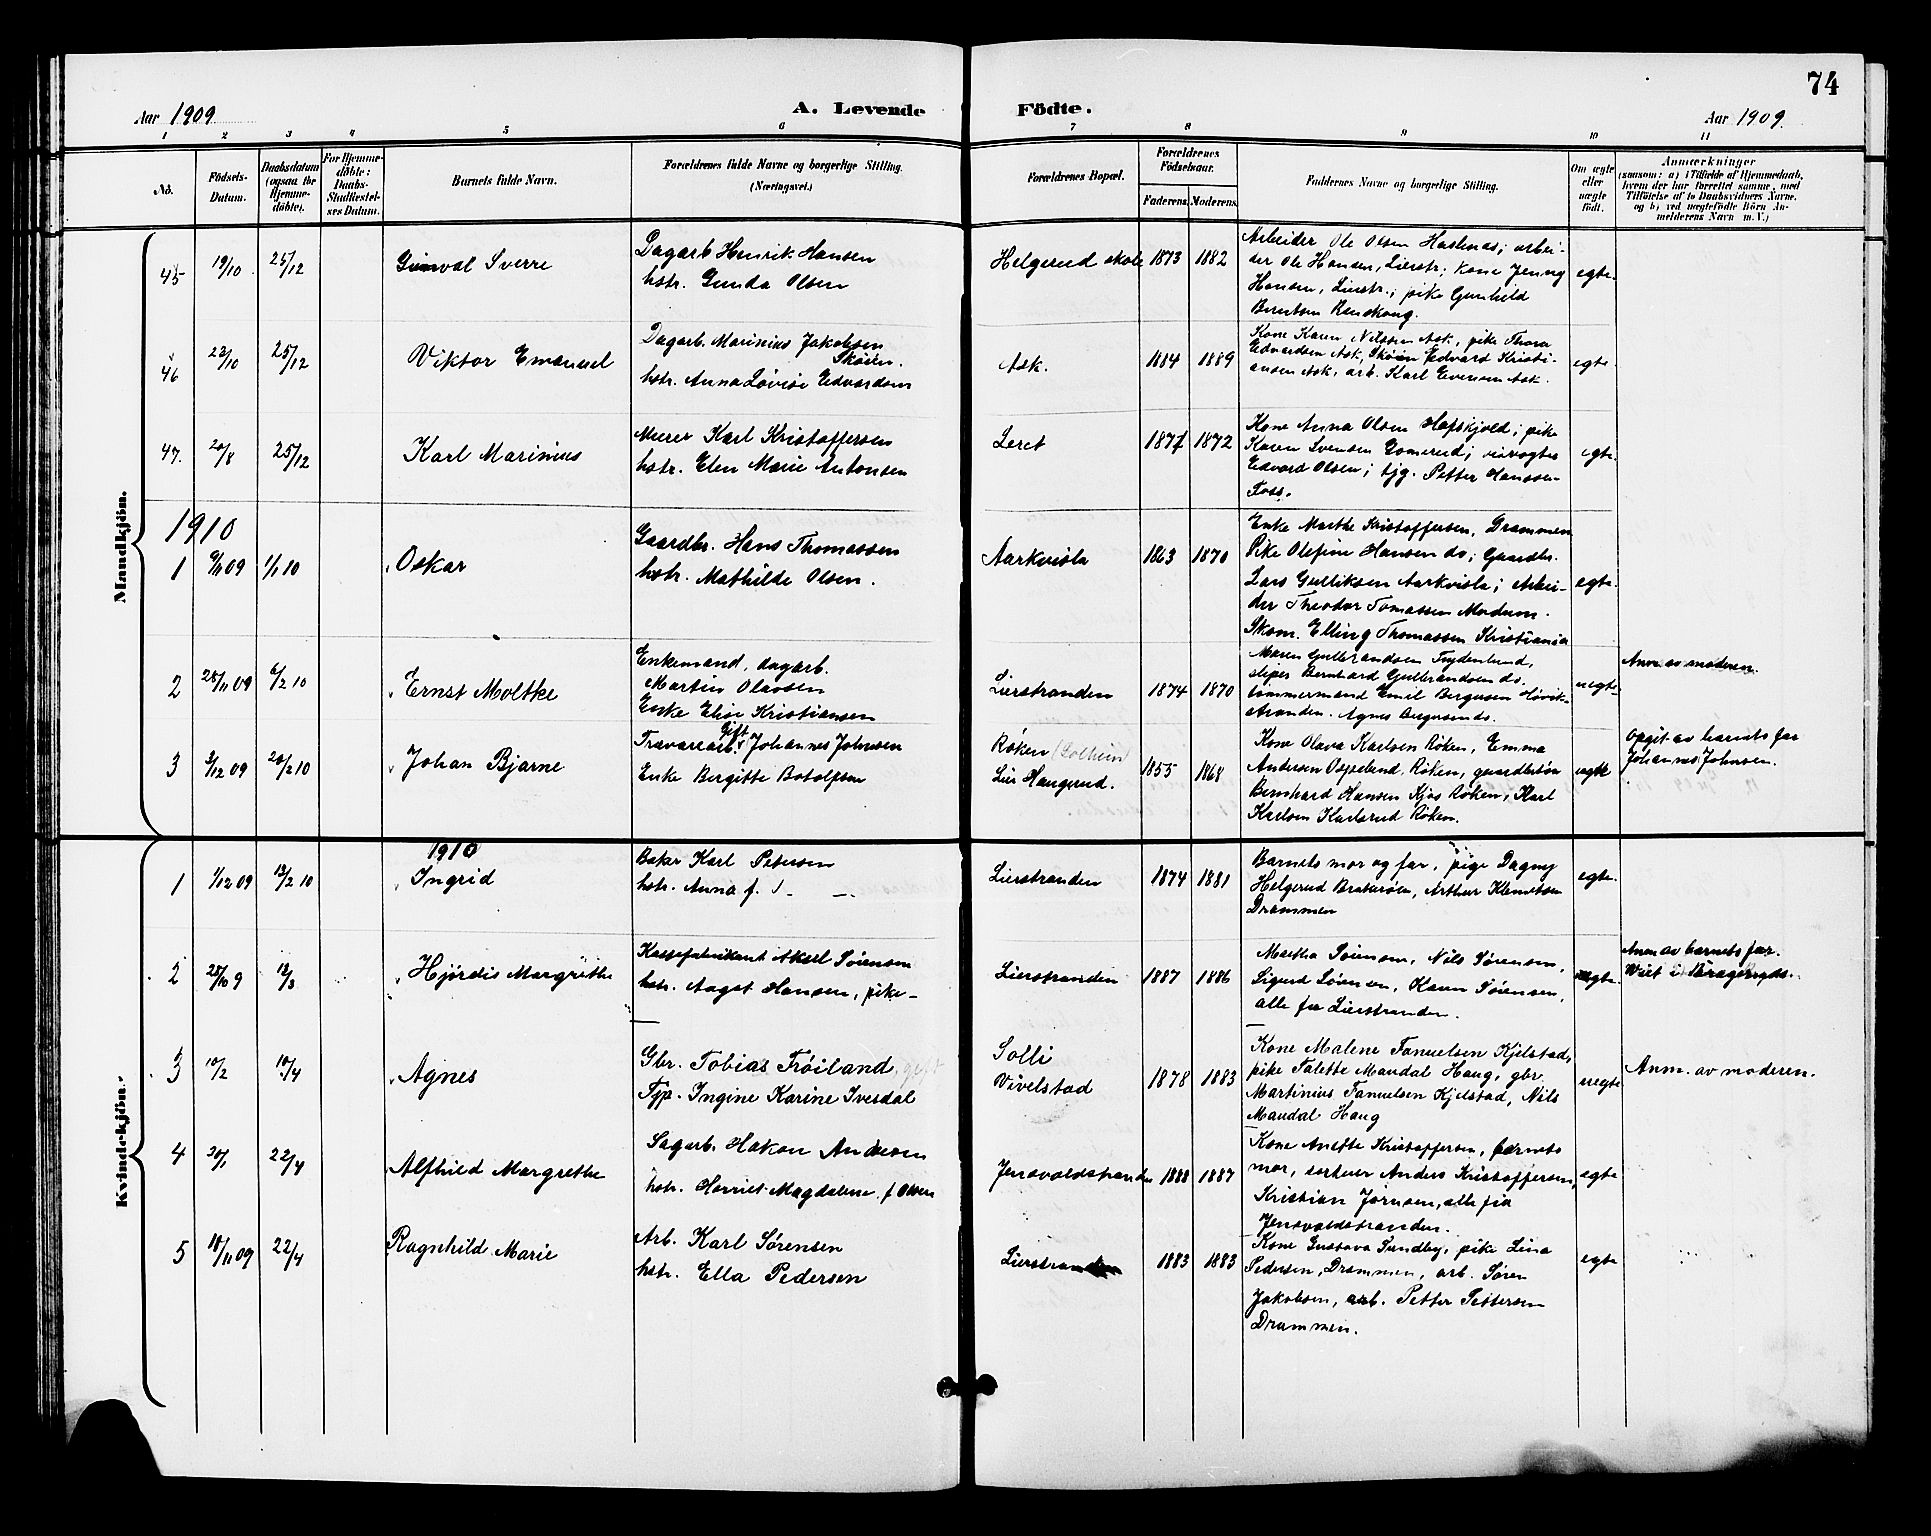 74
Aar 1909
A. Levende
Födte.
Aar 1909.
1 2 3 4 5 6 7 8 9 10 11
No.
Födsels-Datum.
Daabsdatum (ogsaa for Hjemme-döbte).
For Hjemme-döbte: Daabs-Stadfæstelses Datum.
Barnets fulde Navn.
Forældrenes fulde Navne og borgerlige Stilling.
(Næringsvei.)
Forældrenes Bopæl.
Forældrenes Födselsaar.
Faderens. Moderens.
Faddernes Navne og borgerlige Stilling.
Om ægte eller uægte födt.
Anmærkninger
(saasom: a) i Tilfælde af Hjemmedaab,
hvem der har forrettet samme, med
Tilföielse af to Daabsvidners Navne,
og b) ved uægtefödte Börn An-
melderens Navn m. V.)
Mandkjön.
45 19/10 25/12 Gunval Sverre
Dagarb Henrik Hansen
hstr. Gunda Olsen
Helgerud skole 1873 1882
Arbeider Ole Olsen Haslenas; arbei-
der Ole Hansen, Lierstr; kone Jenny
Hansen, Lierstr.; pike Gunhild
Berntsen Renskoug.
egte.
46 23/10 25/12 Viktor Emanuel
Dagarb. Marinius Jakobsen
Skoien.
hstr. Anna Lovise Edvardsen
Ask. 1884 1889
Kone Karen Nilssen Ask, pike Thora
Edvardsen Ask, Skoien Edvard Kristi-
ansen Ask, arb. Karl Evensen Ask.
egte.
47. 20/8 25/12 Karl Marinius
Murer Karl Kristoffersen
hstr. Elen Marie Antonsen
Leret 1871 1872
Kone Anna Olsen Hofskjold; pike
Karen Svensen Gomerud; veivogter
Edvard Olsen; tjg. Petter Hanssen
Foss.
egte.
1910
1 9/11 09 1/1 10 Oskar
Gaardbr. Hans Thomassen
hstr. Mathilde Olsen.
Aarkvisla 1863 1870
Enke Marthe Kristoffersen, Drammen
Pike Olefine Hansen do; Gaardbr.
Lars Gulliksen Aarkvisla; Arbei-
der Theodor Tomassen Modum.
Skom. Elling Thomassen Kristiania
egte.
2 25/11 09 6/2 10 Ernst Moltke
Enkemand, dagarb.
Martin Olavsen
Enke Elise Kristiansen
Lierstranden 1874 1870
Maren Gulbrandsen Frydenlund,
sliper Bernhard Gulbrandsen do.
tømmermand Emil Bergersen Høvik-
stranden. Agnes Bergersen do.
uegte
Anm. av moderen.
3 3/12 09 20/2 10 Johan Bjarne
Gift
Travarearb. Johannes Johnsen
Enke Bergitte Botolfsen
Røken (Solheim)
Lier Haugerud.
1855 1868
Kone Olava Karlsen Røken, Emma
Andersen Ospelund, Røken, gaardbrsøn
Bernhard Hansen Kjos Røken, Karl
Karlsen Karlsrud Røken.
uegte
Opgit av barnets far
Johannes Johnsen.
Kvindekjön.
1910
1 1/12 09 13/2 10 Ingrid
Baker Karl Petersen
hstr. Anna f. J. —
Lierstranden 1874 1881
Barnets mor og far, pige Dagny
Helgerud Brakerøen, Arthur Klemetsen
Drammen
egte.
2 25/10 9 13/3 Hjørdis Margrethe
Kassefabrikant Aksel Sørensen
hstr. Aagot Hansen, pike—
Lierstranden 1887 1886
Martha Sørensen, Nils Sørensen,
Sigurd Sørensen, Karen Sørensen,
alle fra Lierstranden.
uegte.
Anm av barnets far.
Viet i Bragernes.
3 10/2 10/4 Agnes
Gbr. Tobias Frøiland, gift
Tjp. Ingine Karine Iversdal
Solli
Vivelstad
1878 1883
Kone Malene Fanuelsen Kjelstad,
pike Talette Maudal Haug, gbr.
Martinius Fanuelsen Kjelstad, Nils
Maudal Haug
uegte
Anm. av moderen.
4 20/1 22/4 Alfhild Margrethe
Sagarb. Hakon Andersen
hstr. Harriet Magdalene f Olsen
Jensvoldstranden 1888 1887
Kone Anette Kristoffersen, barnets
mor, sorterer Anders Kristoffersen,
Kristian Jørnsen, alle fra
Jensvoldstranden.
egte
5 18/11 09 22/4 Ragnhild Marie
Arb. Karl Sørensen
hstr. Ella Pedersen
Lierstranden 1883 1883
Kone Gustava Sundby, pike Lina
Pedersen, Drammen, arb. Søren
Jakobsen, arb. Petter Pettersen
Drammen.
egte